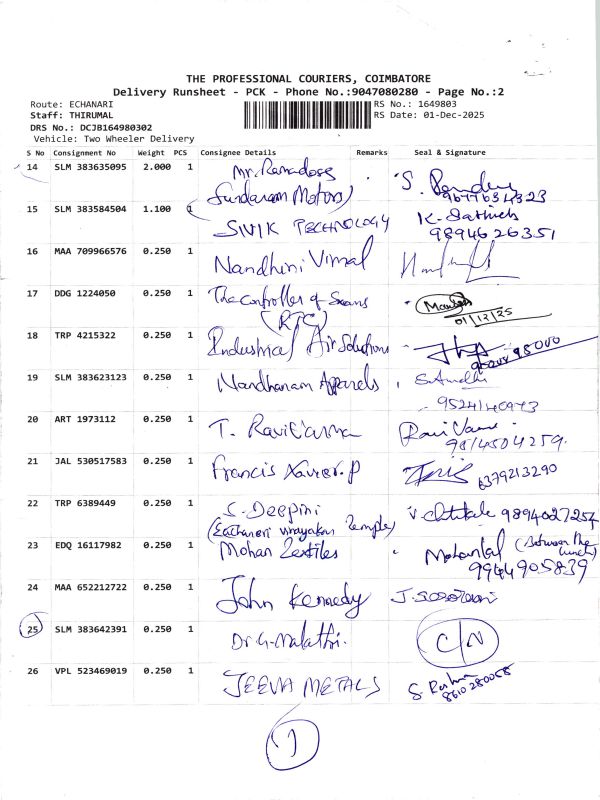 THE PROFESSIONAL COURIERS, COIMBATORE
Delivery Runsheet - PCK - Phone No.:9047080280 - Page No.:2
Route: ECHANARI
Staff: THIRUMAL
DRS No.: DCJB164980302
Vehicle: Two Wheeler Delivery
RS No.: 1649803
RS Date: 01-Dec-2025
S No Consignment No Weight PCS Consignee Details Remarks Seal & Signature
14 SLM 383635095 2.000 1 Mr. Ramadoss S.
(Sundaram Motors) 9677634323
15 SLM 383584504 1.100 1 SIVIK TECHNOLOGY K. Sathish
9894626351
16 MAA 709966576 0.250 1 Nandhini Vimal
17 DDG 1224050 0.250 1 The Controller of Exams
(RTC) 01/12/25
18 TRP 4215322 0.250 1 Industrial Air Solutions
19 SLM 383623123 0.250 1 Nandhanam Apparels
9524140973
20 ART 1973112 0.250 1 T. Ravivarma Ravi Varma
9814504259.
21 JAL 530517583 0.250 1 Francis Xavier.P 6379213290
22 TRP 6389449 0.250 1 S. Deepini 9894027257
(Eachanari Vinayakar Temple)
23 EDQ 16117982 0.250 1 Mohan Textiles Mohanlal (Between the
9944905839
24 MAA 652212722 0.250 1 John Kennedy
25 SLM 383642391 0.250 1 Dr G. Malathi. C/N
26 VPL 523469019 0.250 1 JEEVA METALS S.
8610280058
1